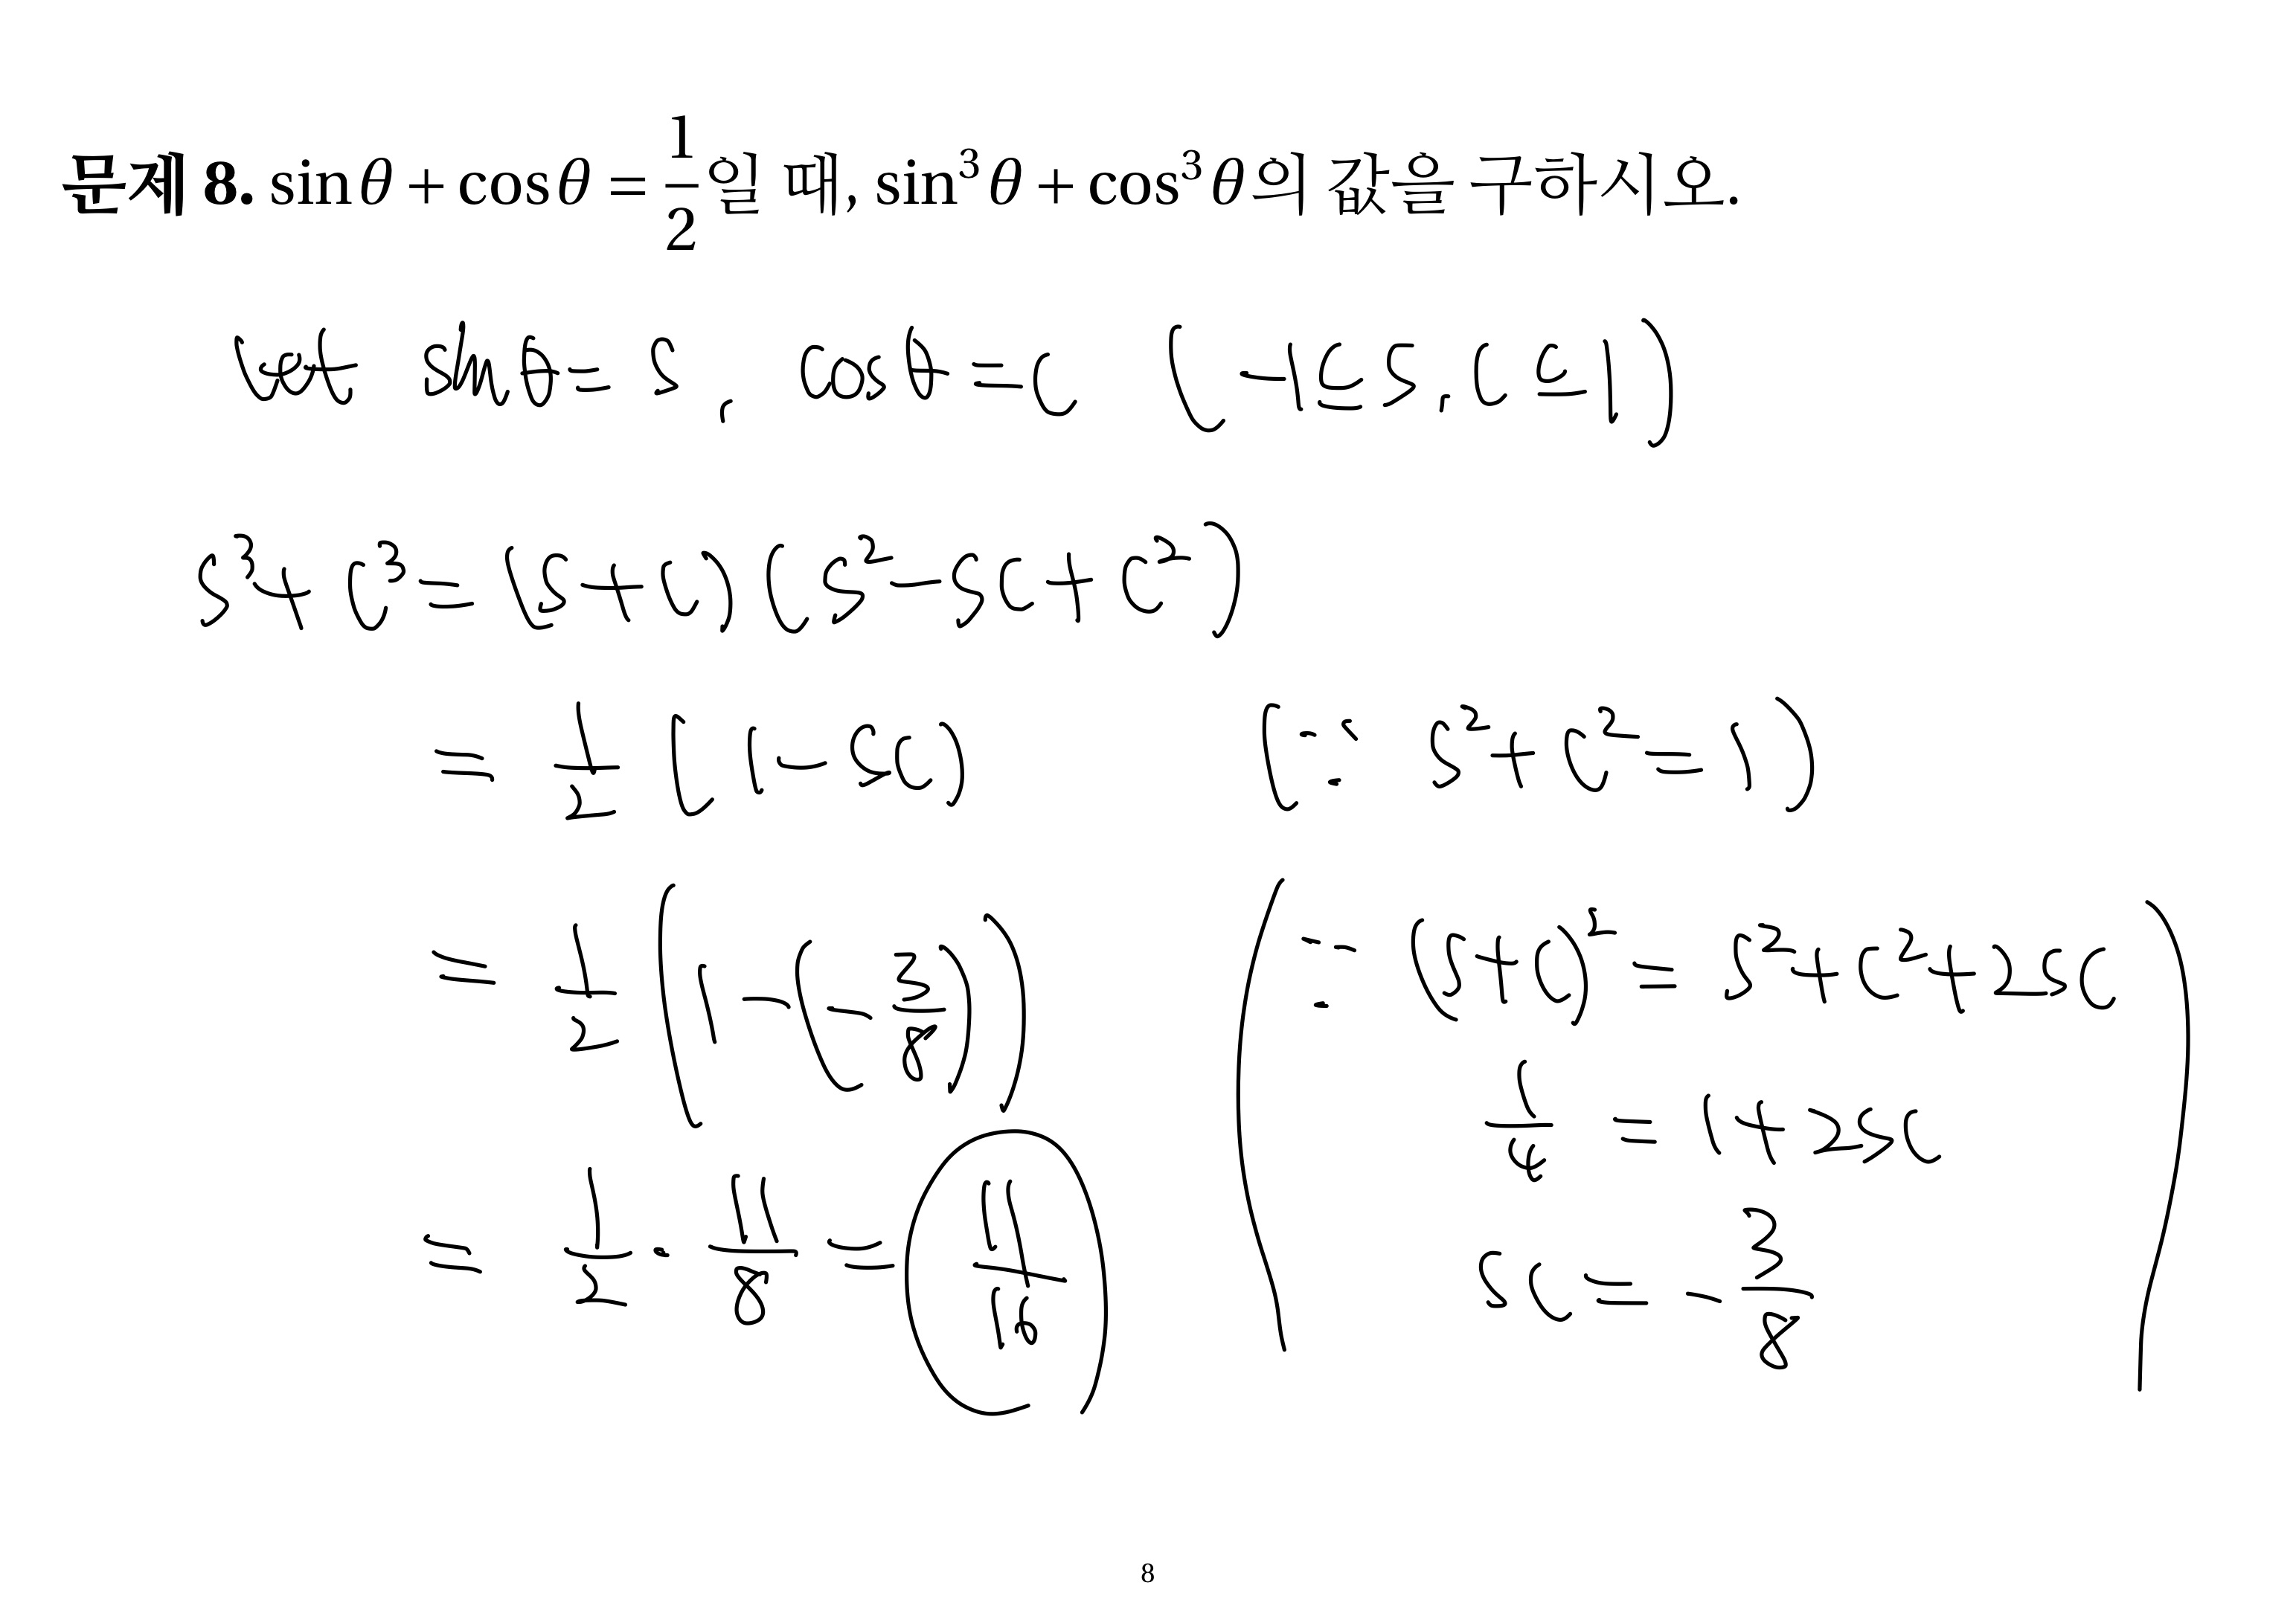 문제 8. sin θ + cos θ = 1/2일 때, sin³ θ + cos³ θ의 값을 구하시오.
Let sinθ = s, cosθ = c (-1 ≤ s, c ≤ 1)
s³ + c³ = (s+c)(s² - sc + c²)
= 1/2 (1 - sc) (∵ s² + c² = 1)
= 1/2 (1 - (-3/8)) (∵ (s+c)² = s² + c² + 2sc
1/4 = 1 + 2sc
= 1/2 · 11/8 = 11/16
sc = -3/8)
8